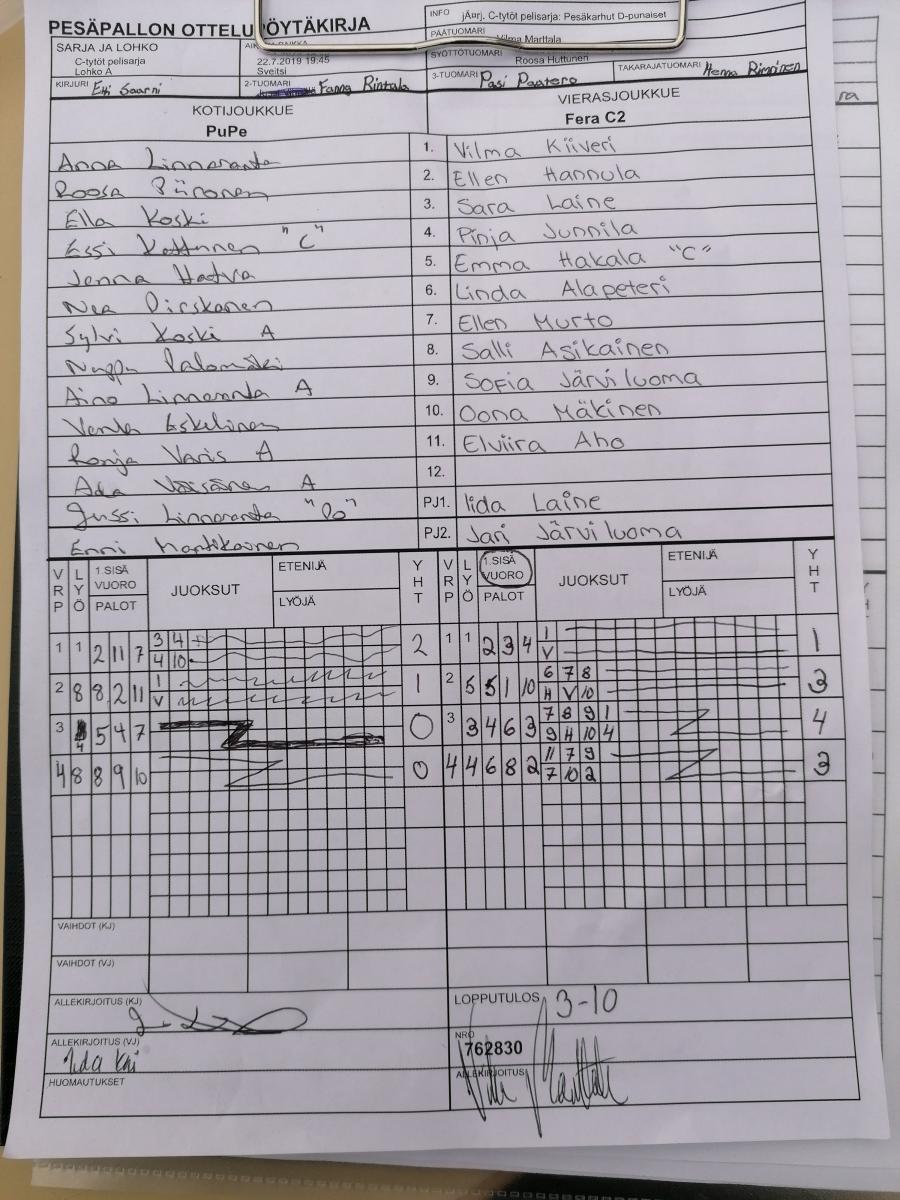 PESÄPALLON OTTELUPÖYTÄKIRJA
INFO jÄ¤rj. C-tytöt pelisarja: Pesäkarhut D-punaiset
PÄÄTUOMARI Vilma Marttala
SARJA JA LOHKO
C-tytöt pelisarja
Lohko A
22.7.2019 19:45
Sveitsi
SYÖTTÖTUOMARI Roosa Huttunen
KIRJURI Etti Saarni
2-TUOMARI Fanny Rintala
3-TUOMARI Pasi Paatero
TAKARAJATUOMARI Henna Rimpinen
KOTIJOUKKUE
PuPe
VIERASJOUKKUE
Fera C2
Anna Linnaranta 1. Vilma Kiiveri
Roosa Piironen 2. Ellen Hannula
Ella Koski 3. Sara Laine
Essi Kettunen "C" 4. Pinja Junnila
Jenna Hatva 5. Emma Hakala "C"
Nea Pirskanen 6. Linda Alapeteri
Sylvi Koski A 7. Ellen Murto
Nuppu Palomäki 8. Salli Asikainen
Aino Linnaranta A 9. Sofia Järviluoma
Venla Eskelinen 10. Oona Mäkinen
Ronja Varis A 11. Elviira Aho
Ada Väisänen A 12.
Jussi Linnaranta PJ1. Iida Laine
Enni Martikainen PJ2. Jari Järviluoma
VRP LYÖ 1.SISÄ VUORO PALOT JUOKSUT ETENIJÄ LYÖJÄ YHT VRP LYÖ 1.SISÄ VUORO PALOT JUOKSUT ETENIJÄ LYÖJÄ YHT
1 1 2 11 7 3 4 2 1 1 2 3 4 1 1
4 10 V
2 8 8 2 11 1 1 2 5 5 1 10 6 7 8 3
V H V 10
3 4 5 4 7 0 3 3 4 6 3 7 8 9 1 4
9 4 10 4
4 8 8 9 10 0 4 4 6 8 2 11 7 9 3
7 10 2
VAIHDOT (KJ)
VAIHDOT (VJ)
ALLEKIRJOITUS (KJ)
LOPPUTULOS 3-10
ALLEKIRJOITUS (VJ)
NRO
762830
HUOMAUTUKSET
ALLEKIRJOITUS